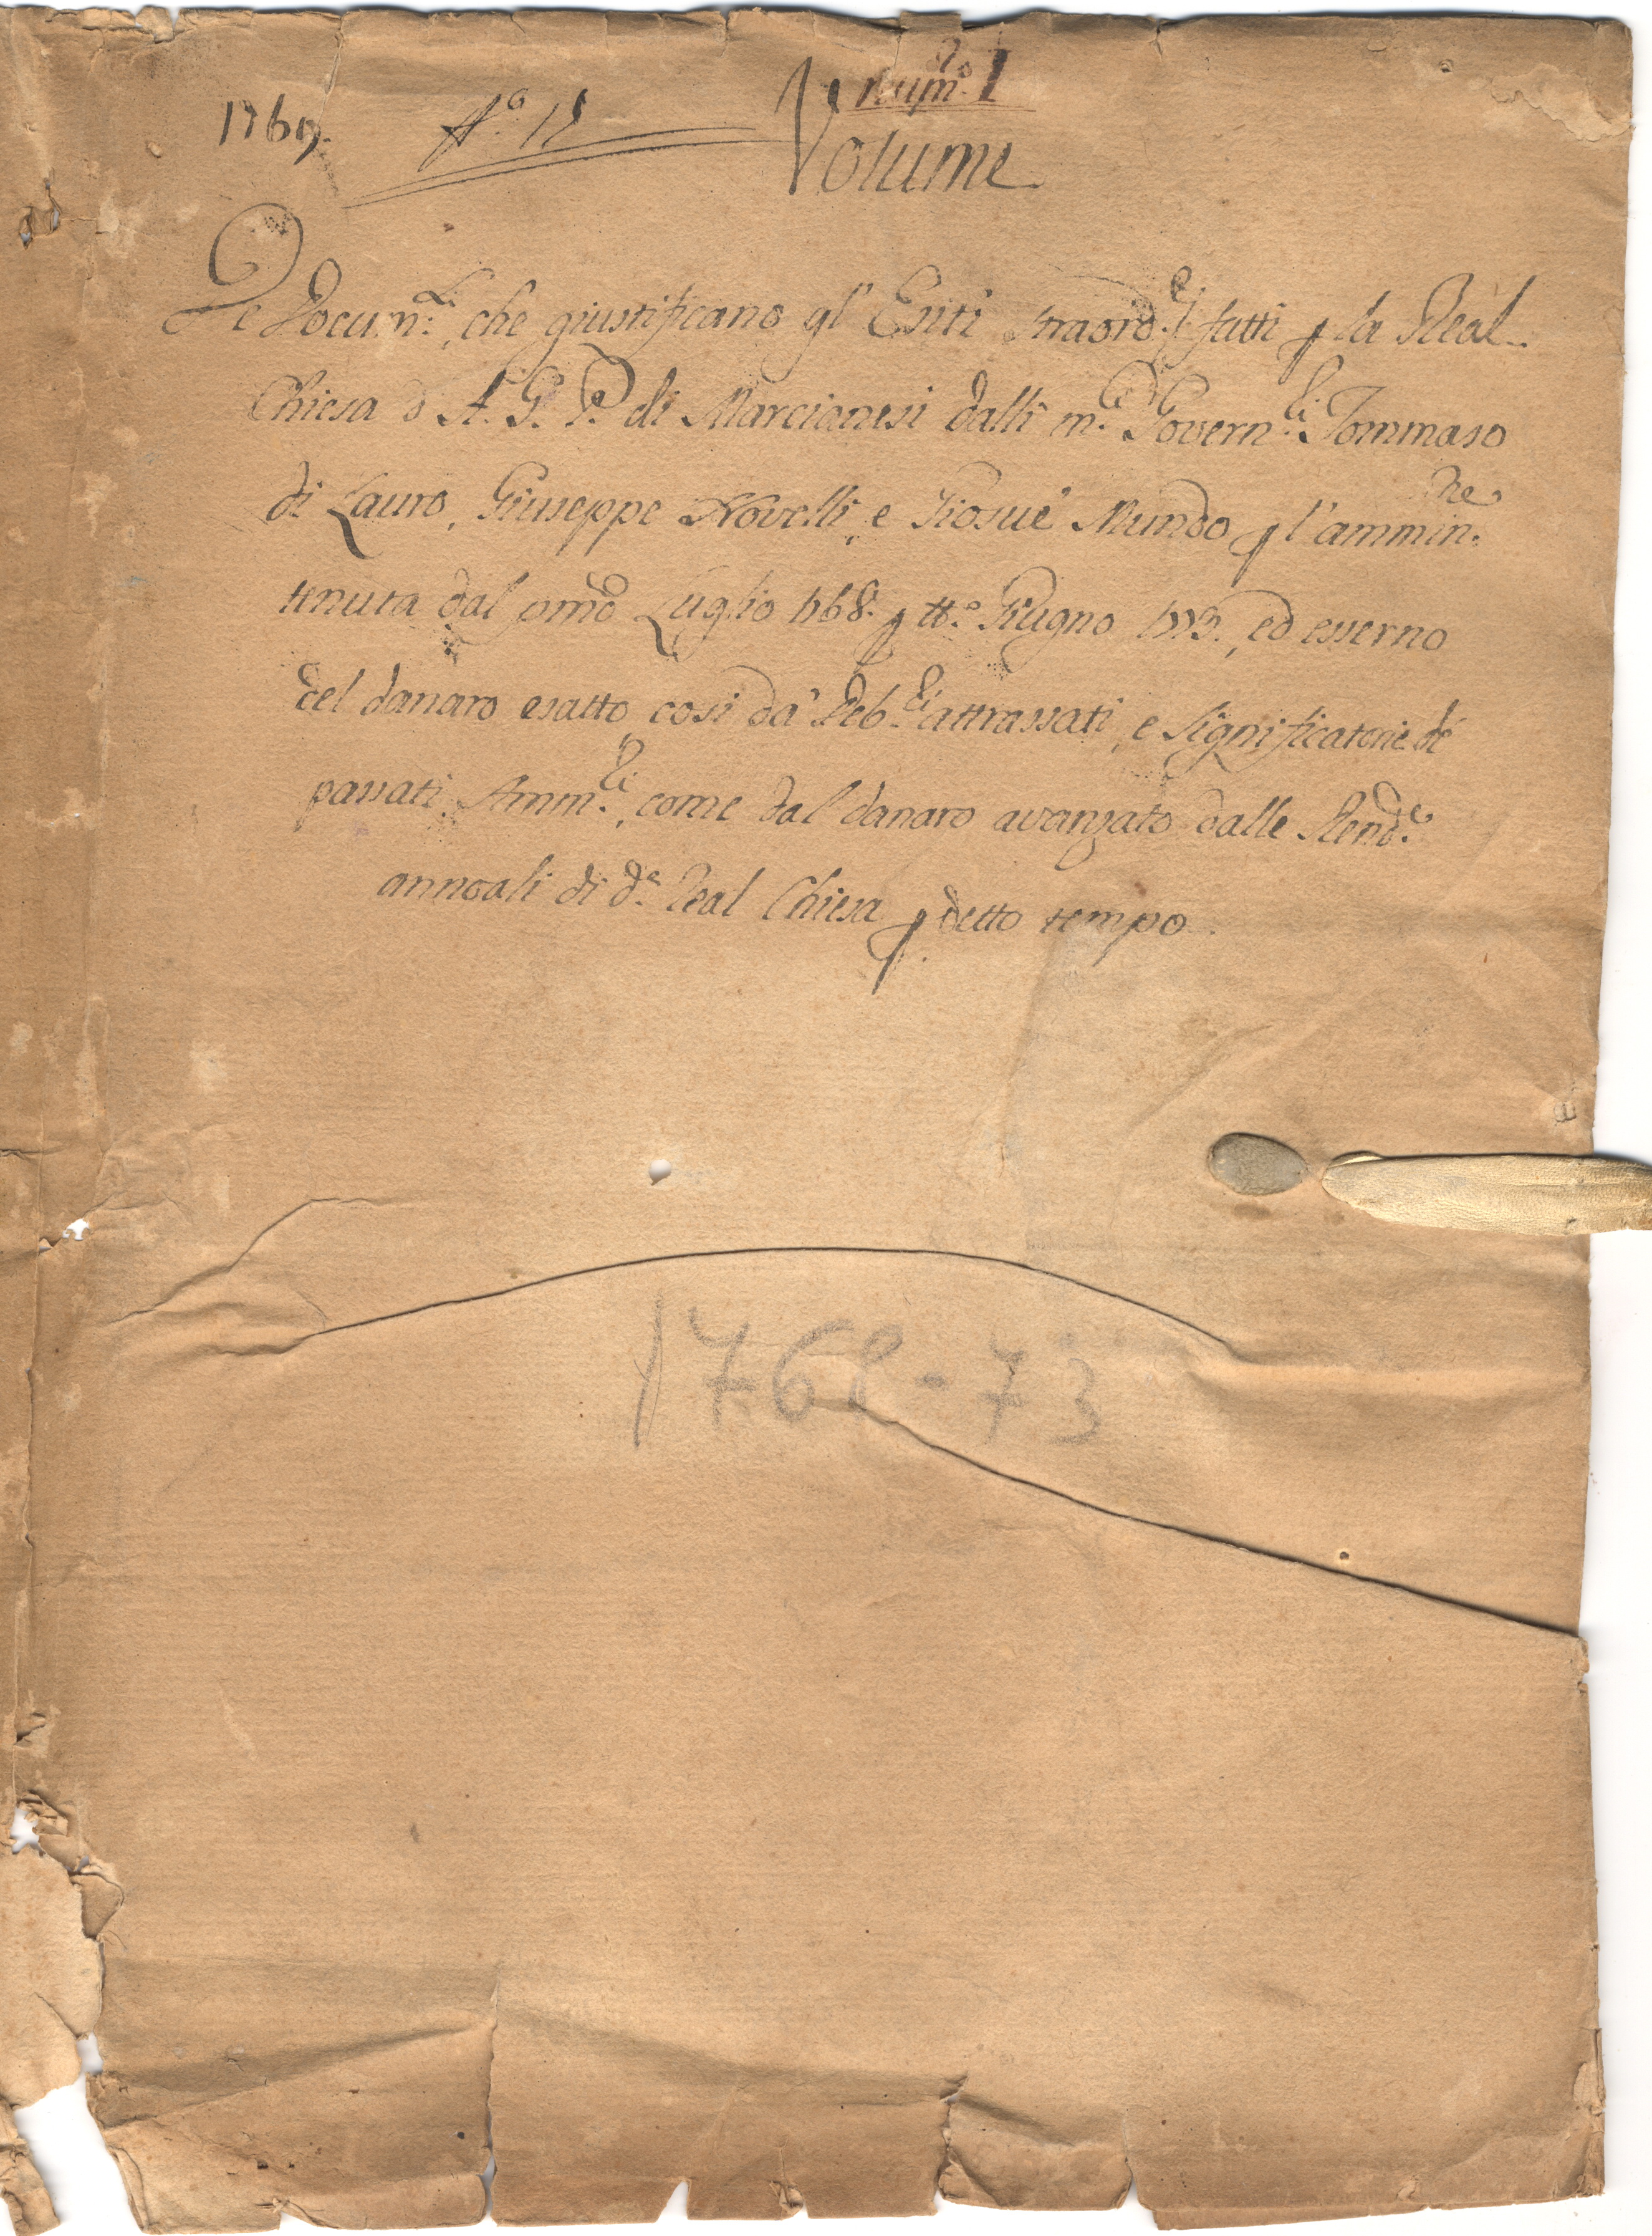 Num.º I
1769. A.º 12 Volume
De Docum.ti, che giustificano gl' Esiti straord.rj fatti p la Real
Chiesa d' A. G. P. di Marcianesi dalli m.ci Govern.ri Tommaso
di Lauro, Giuseppe Novelli, e Giosuè Mundo p l'ammin.ne
tenuta dal pmo Luglio 1768. p tt.o Giugno 1773., ed esserno
del danaro esatto così da' Deb.ri attrassati, e significatorie de'
passati Amm.ri, come dal danaro avanzato dalle Rend.e
annoali di d.a Real Chiesa p detto tempo.
1768-73